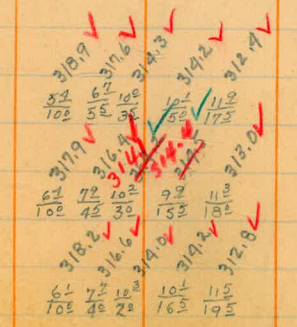 318.9 317.6 314.3 314.2 312.4
5⁴/100 6⁷/55 10⁰/35 10¹/150 11⁹/175
317.9 316.4 314.1 314.4 313.0
6⁴/100 7⁹/45 10²/30 9⁹/155 11³/180
318.2 316.6 314.0 314.2 312.8
6¹/100 7⁷/40 10³/20 10¹/165 11⁵/195